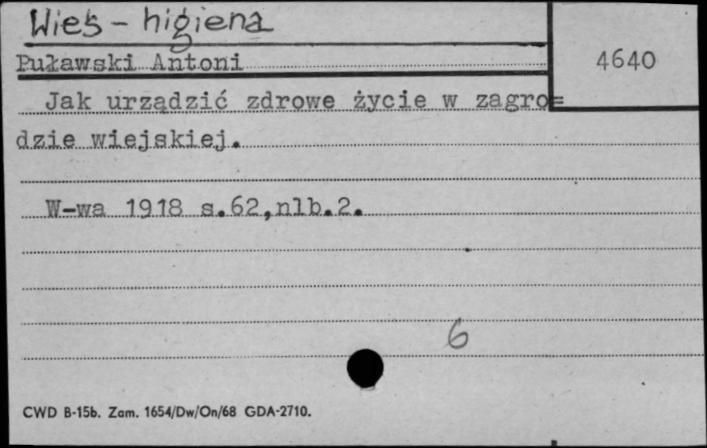 Wieś - higiena
4640
Puławski Antoni
Jak urządzić zdrowe życie w zagro=
dzie wiejskiej.
W-wa 1918 s.62,nlb.2.
6
CWD B-15b. Zam. 1654/Dw/On/68 GDA-2710.